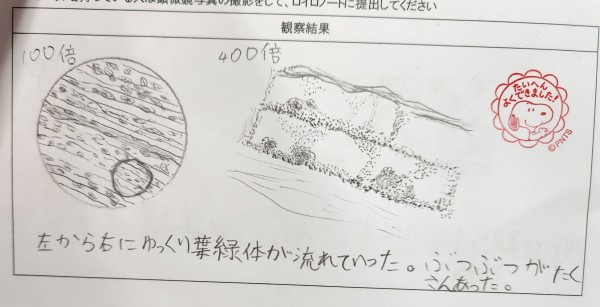 持っている人は顕微鏡写真の撮影をして、ロイロノートに提出してください
観察結果
100倍
400倍
たいへん
よくできました!
©PNTS
左から右にゆっくり葉緑体が流れていった。ぶつぶつがたく
さんあった。